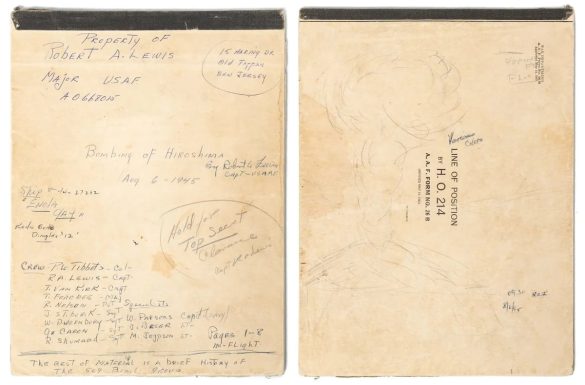 Property of
Robert A. Lewis
Major USAF
AO668015
15 Haring Dr
Old Tappan
New Jersey
Bombing of Hiroshima
By Robert A. Lewis
Capt - USAAF
Aug 6 - 1945
Ship
"Enola
Gay"
Code
Dimples '12'
Hold for
Top Secret
Clearance
Crew P.W. Tibbets - Col -
R.A. Lewis - Capt
T. Van Kirk - Capt
T. Ferebee - Maj
R. Nelson - Pvt
Specialists
J. Stiborik - Sgt
W. Parsons Capt (Navy)
W. Duzenbury - Sgt
J. Beser Lt -
Geo Caron - Sgt
M. Jeppson Lt -
R Shumard - Sgt
Pages 1-8
In-Flight
The Rest of Material is a brief History of
The 509
LINE OF POSITION
BY
H. O. 214
A. A. F. FORM NO. 26 B